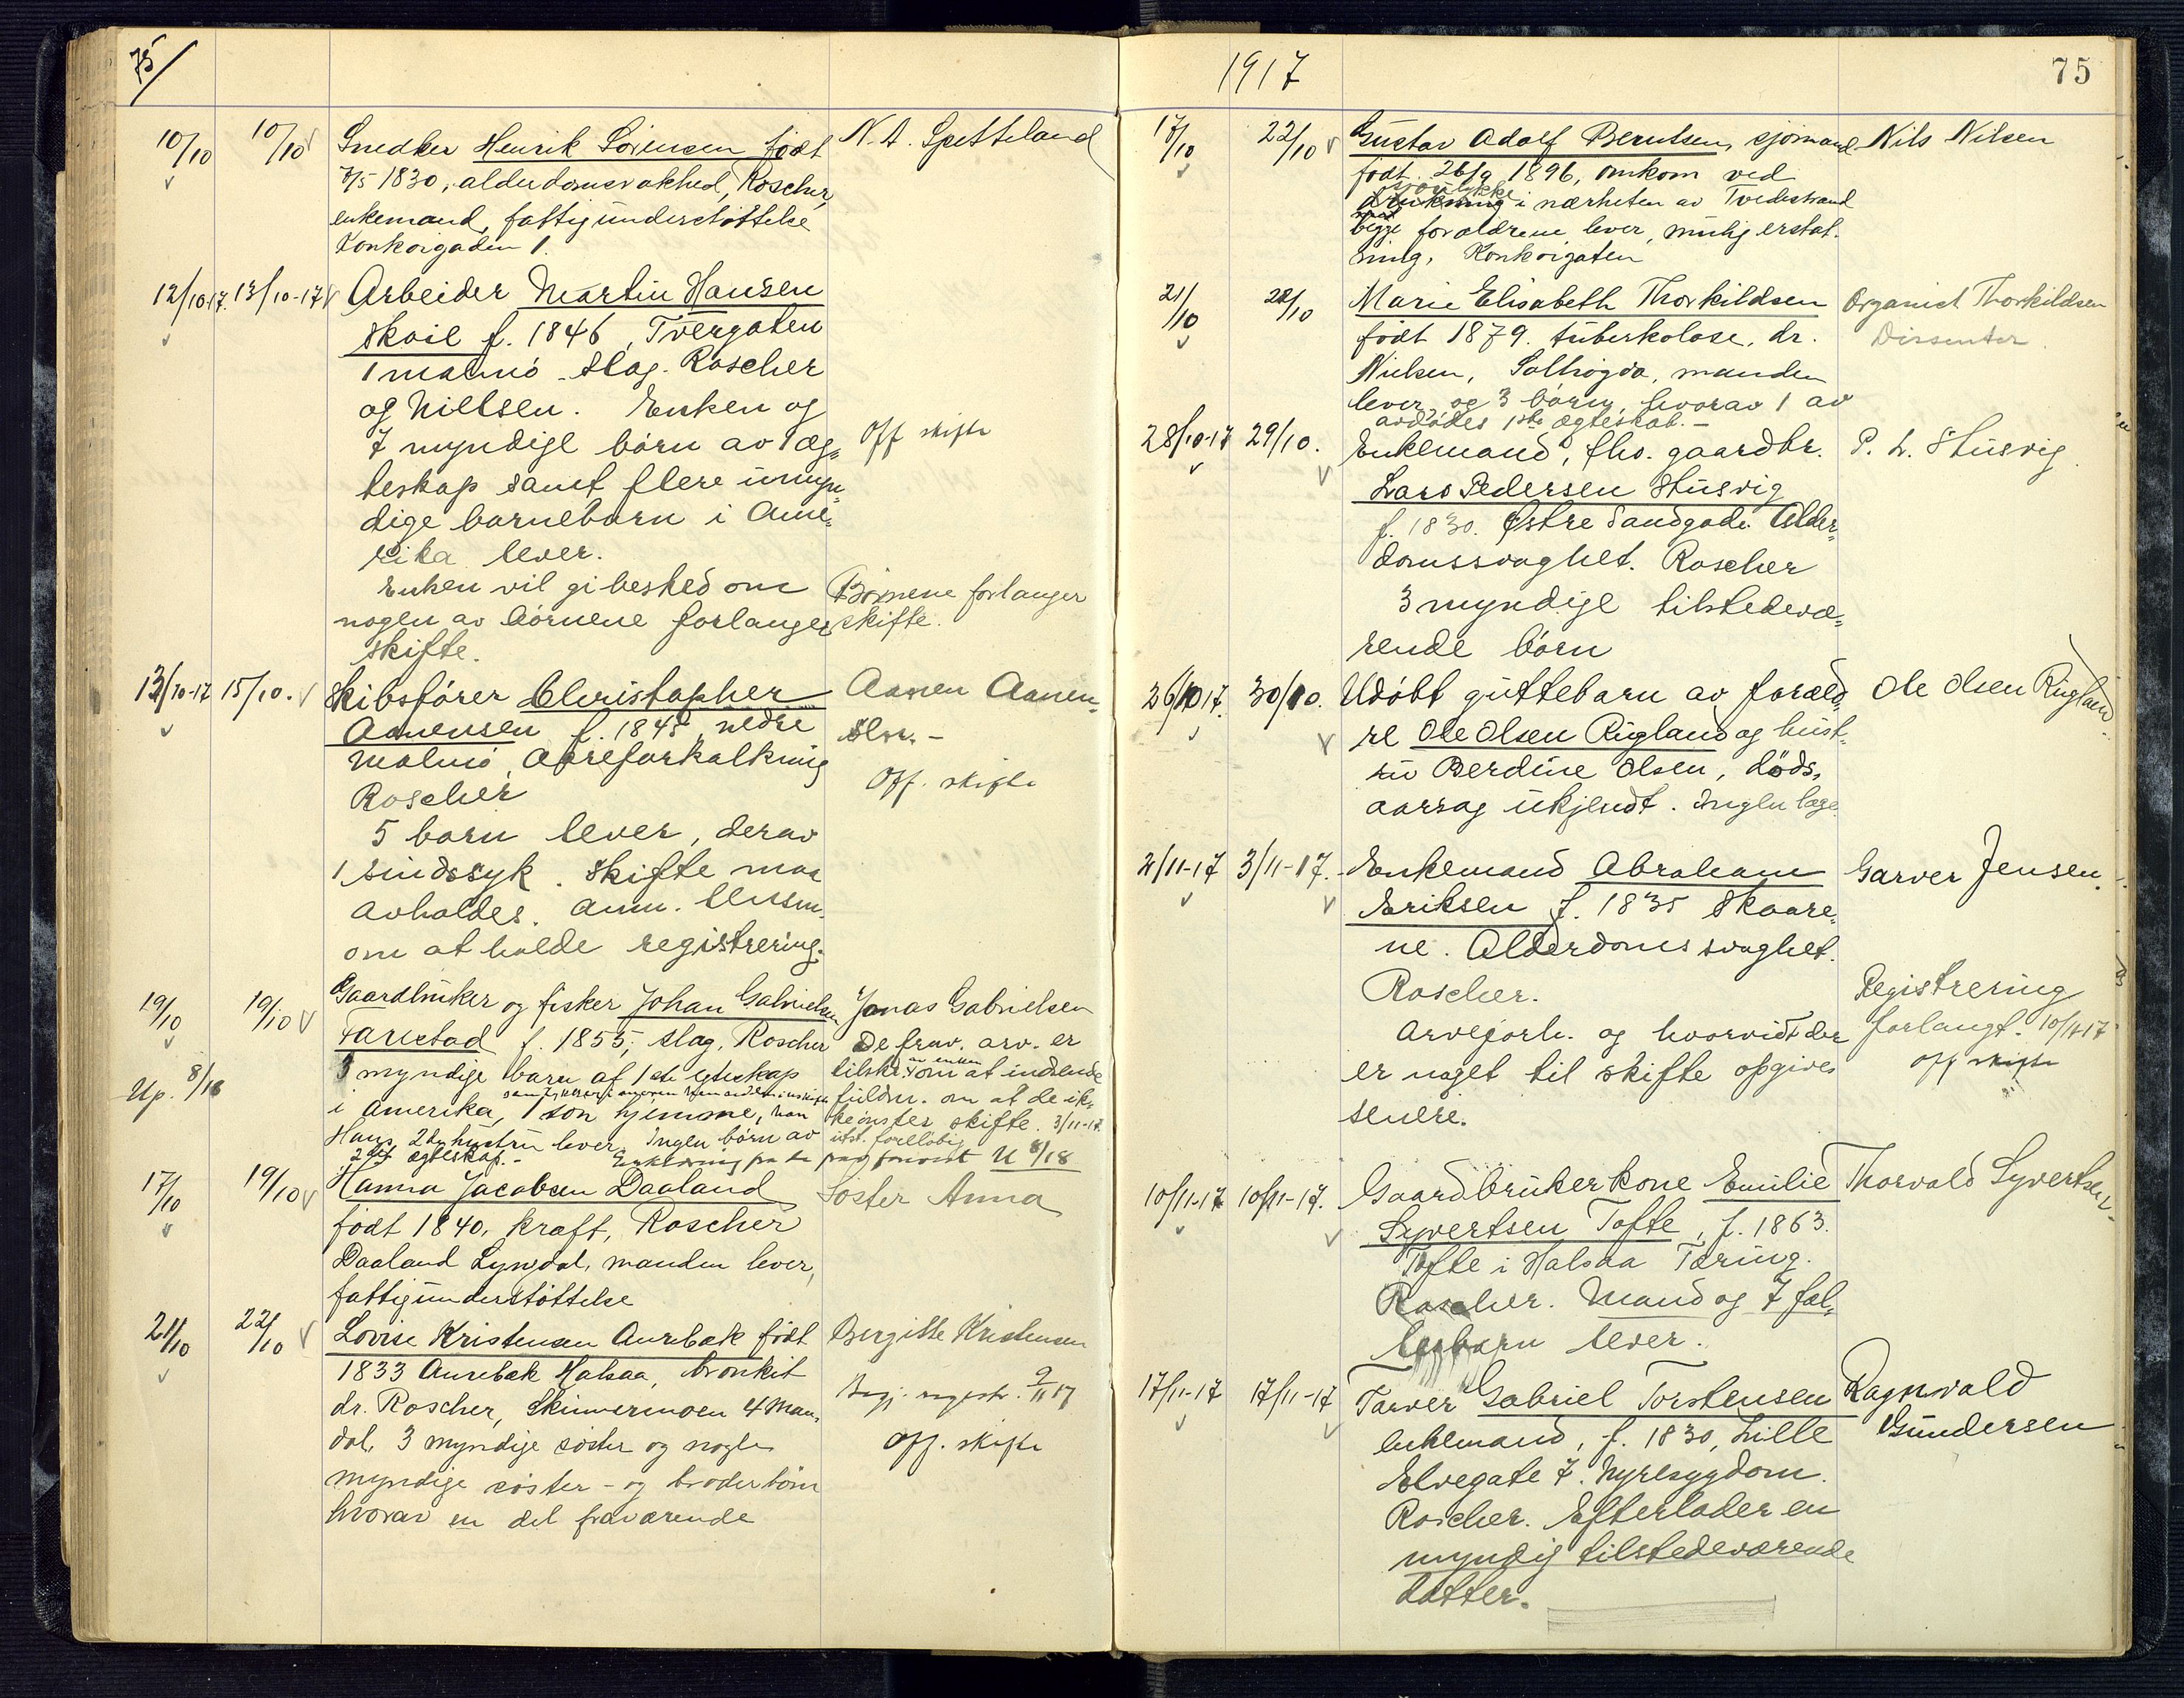 75
10/10 10/10 Snedker Henrik Sörensen født N. A. Spetteland
7/5 1830, alderdomsvakhed, Roscher,
enkemand, fattigunderstøttelse
Konkoigaden 1.
12/10 17. 13/10-17 Arbeider Martin Hansen
Skoie f. 1846, Tvergaten
1 malmö - slag. Roscher
og Nielsen. Enken og
7 myndige børn av 1 æg= Off skifte
teskap samt flere umyn=
dige barnebarn i Ame=
rika lever.
Enken vil gi besked om Börnene forlanger
nogen av börnene forlanger skifte.
skifte.
13/10-17 15/10. Skibsfører Christopher Aanen Aanen=
Aanensen f. 1845, nedre sen. -
Malmö, Aareforkalkning Off. skifte
Roscher
5 barn lever, derav
1 sindssyk. Skifte maa
avholdes. Anm.
om at holde registrering.
19/10 19/10 Gaardbruker og fisker Johan Gabrielsen Jonas Gabrielsen
Tarestad f. 1855, slag, Roscher De frav. arv. er
3 myndige barn af 1ste egteskap tilskr. om at indsende
Up. 8/18 i Amerika, 1 son hjemme, han fuldm. om at de ik=
Hans 2den hustru lever. Ingen børn av ke ønsker skifte. 3/11-17
2det ægteskap. - utst. foreløbig U 8/18
17/10 19/10 Hanna Jacobsen Daaland Søster Anna
født 1840, kræft, Roscher
Daaland Lyngdal, manden lever,
fattigunderstøttelse
21/10 22/10 Lovise Kristensen Aurebæk født Bergitte Kristensen
1833 Aurebæk Halsaa, bronkit Begj. regestr. 9/11 17
dr. Roscher, Skinnermoen 4 Man= Off. skifte
dal, 3 myndige søster og nogle
myndige søster - og broderbörn
hvorav en del fraværende
1917 75
17/10 22/10 Gustav Adolf Berntsen, sjömand Nils Nilsen
født 26/9 1896, omkom ved
i nærheten av Tvedestrand
begge forældrene lever, mulig erstat-
ning, Konkoigaten
21/10 22/10 Marie Elisabeth Thorkildsen Organist Thorkildsen
født 1879. tuberkolose, dr. Dissenter.
Nielsen, Solhøgda, manden
lever og 3 børn, hvorav 1 av
avdødes 1ste ægteskab. -
28/10-17 29/10. Enkemand, fhv. gaardbr. P. L. Stusvig.
Lars Pedersen Stusvig
f. 1830. Østre Sandgade Alder=
domssvaghet. Roscher
3 myndige tilstedevæ=
rende børn
26/10 17. 30/10. Udøbt guttebarn av foræld= Ole Olsen Rugland
re Ole Olsen Rugland og hust=
ru Berdine Olsen, døds=
aarsag ukjendt. Ingen læge
2/11-17 3/11-17. Enkemand Abraham Garver Jensen.
Eriksen f. 1835 Skaare=
ne. Alderdomssvaghet.
Roscher. Registrering
Arveforh. og hvorvidt der forlangt. 10/11-17
er noget til skifte opgives Off skifte
senere.
10/11-17 10/11-17. Gaardbrukerkone Emilie Thorvald Syvertsen
Syvertsen Tofte, f. 1863.
Tofte i Halsaa Tæring.
Roscher. Mand og 7 fæl=
lesbarn lever.
17/11-17 17/11-17 Farver Gabriel Torstensen Ragnvald
enkemand, f. 1830, Lille Gundersen
Elvegate 7. Nyresygdom.
Roscher. Efterlader en
myndig tilstedeværende
datter.